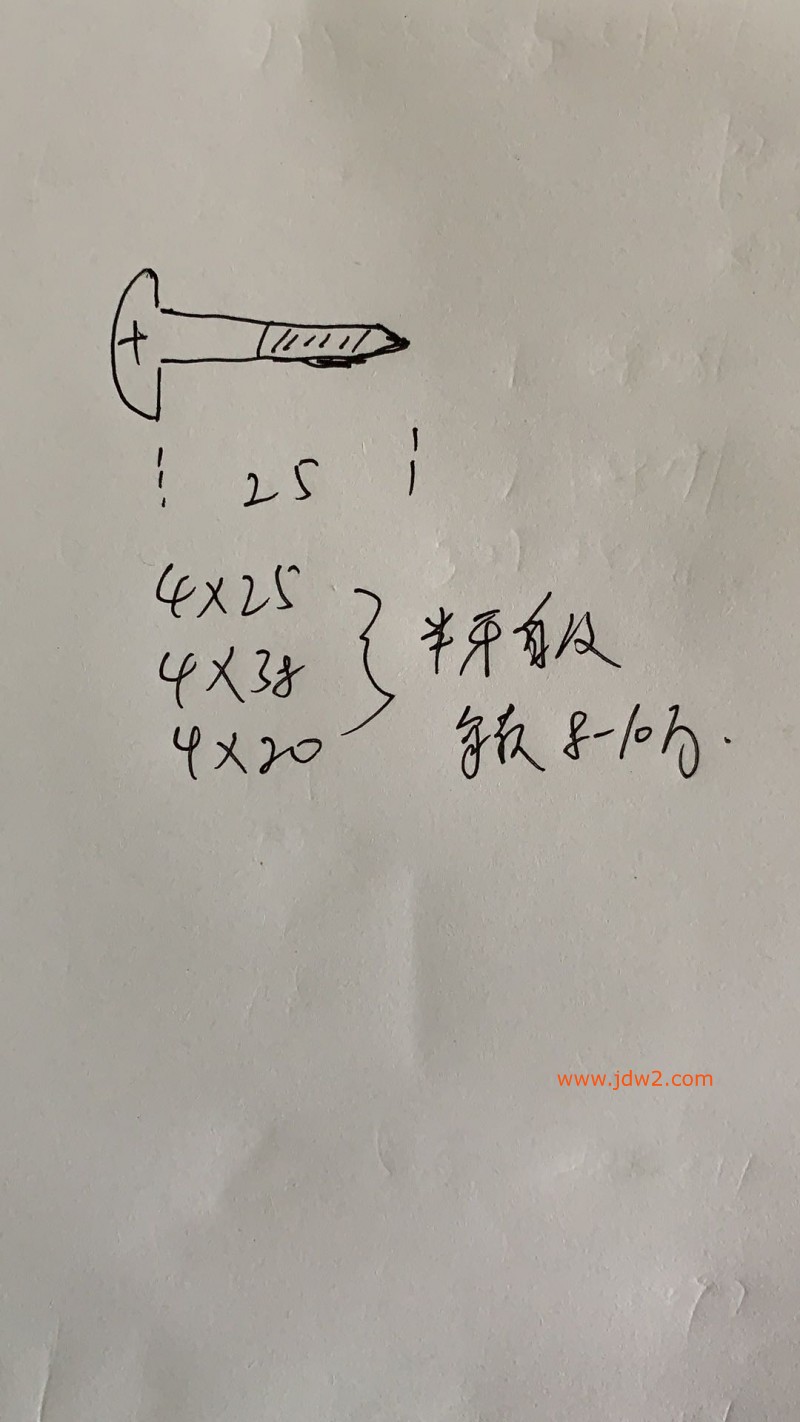 25
4×25
4×38
4×20
半牙自攻
各款 8-10万.
www.jdw2.com